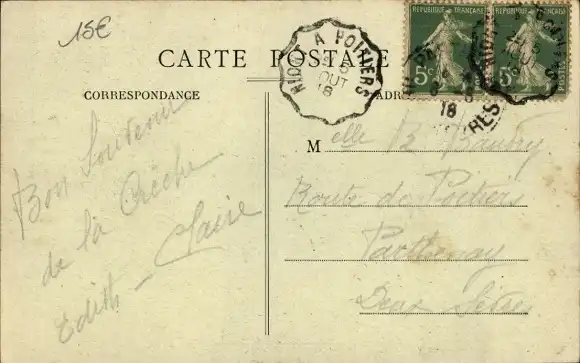 15€
CARTE POSTALE
REPUBLIQUE FRANÇAISE
REPUBLIQUE FRANÇAISE
5c
5c
POSTES
NIORT A POITIERS
OUT
18
18
CORRESPONDANCE
ADR
Bon Souvenir
de la Crèche
Edith - Claire
Melle B. Baudry
Route de Poitiers
Parthenay
Deux Sèvres